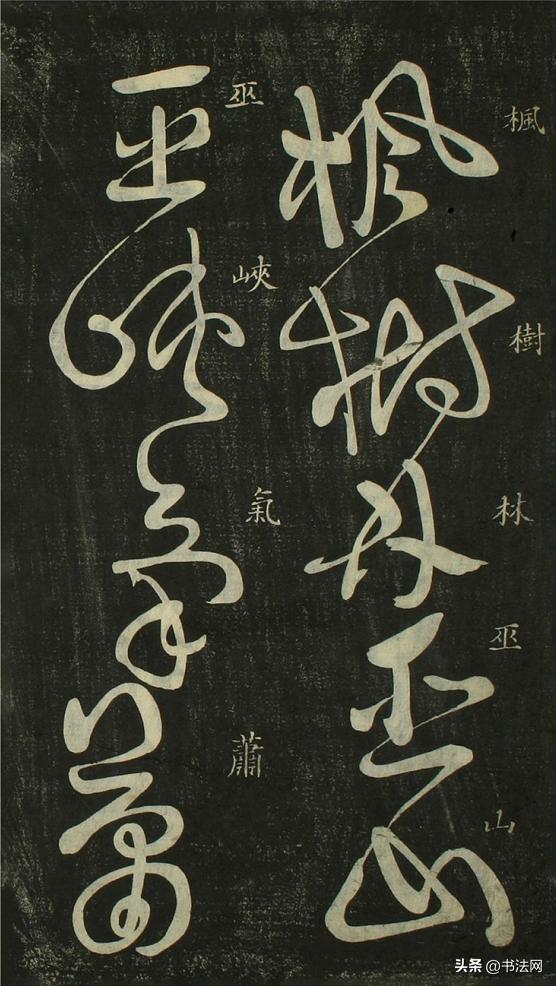 楓樹林巫山
巫峽氣蕭
头条 @书法网